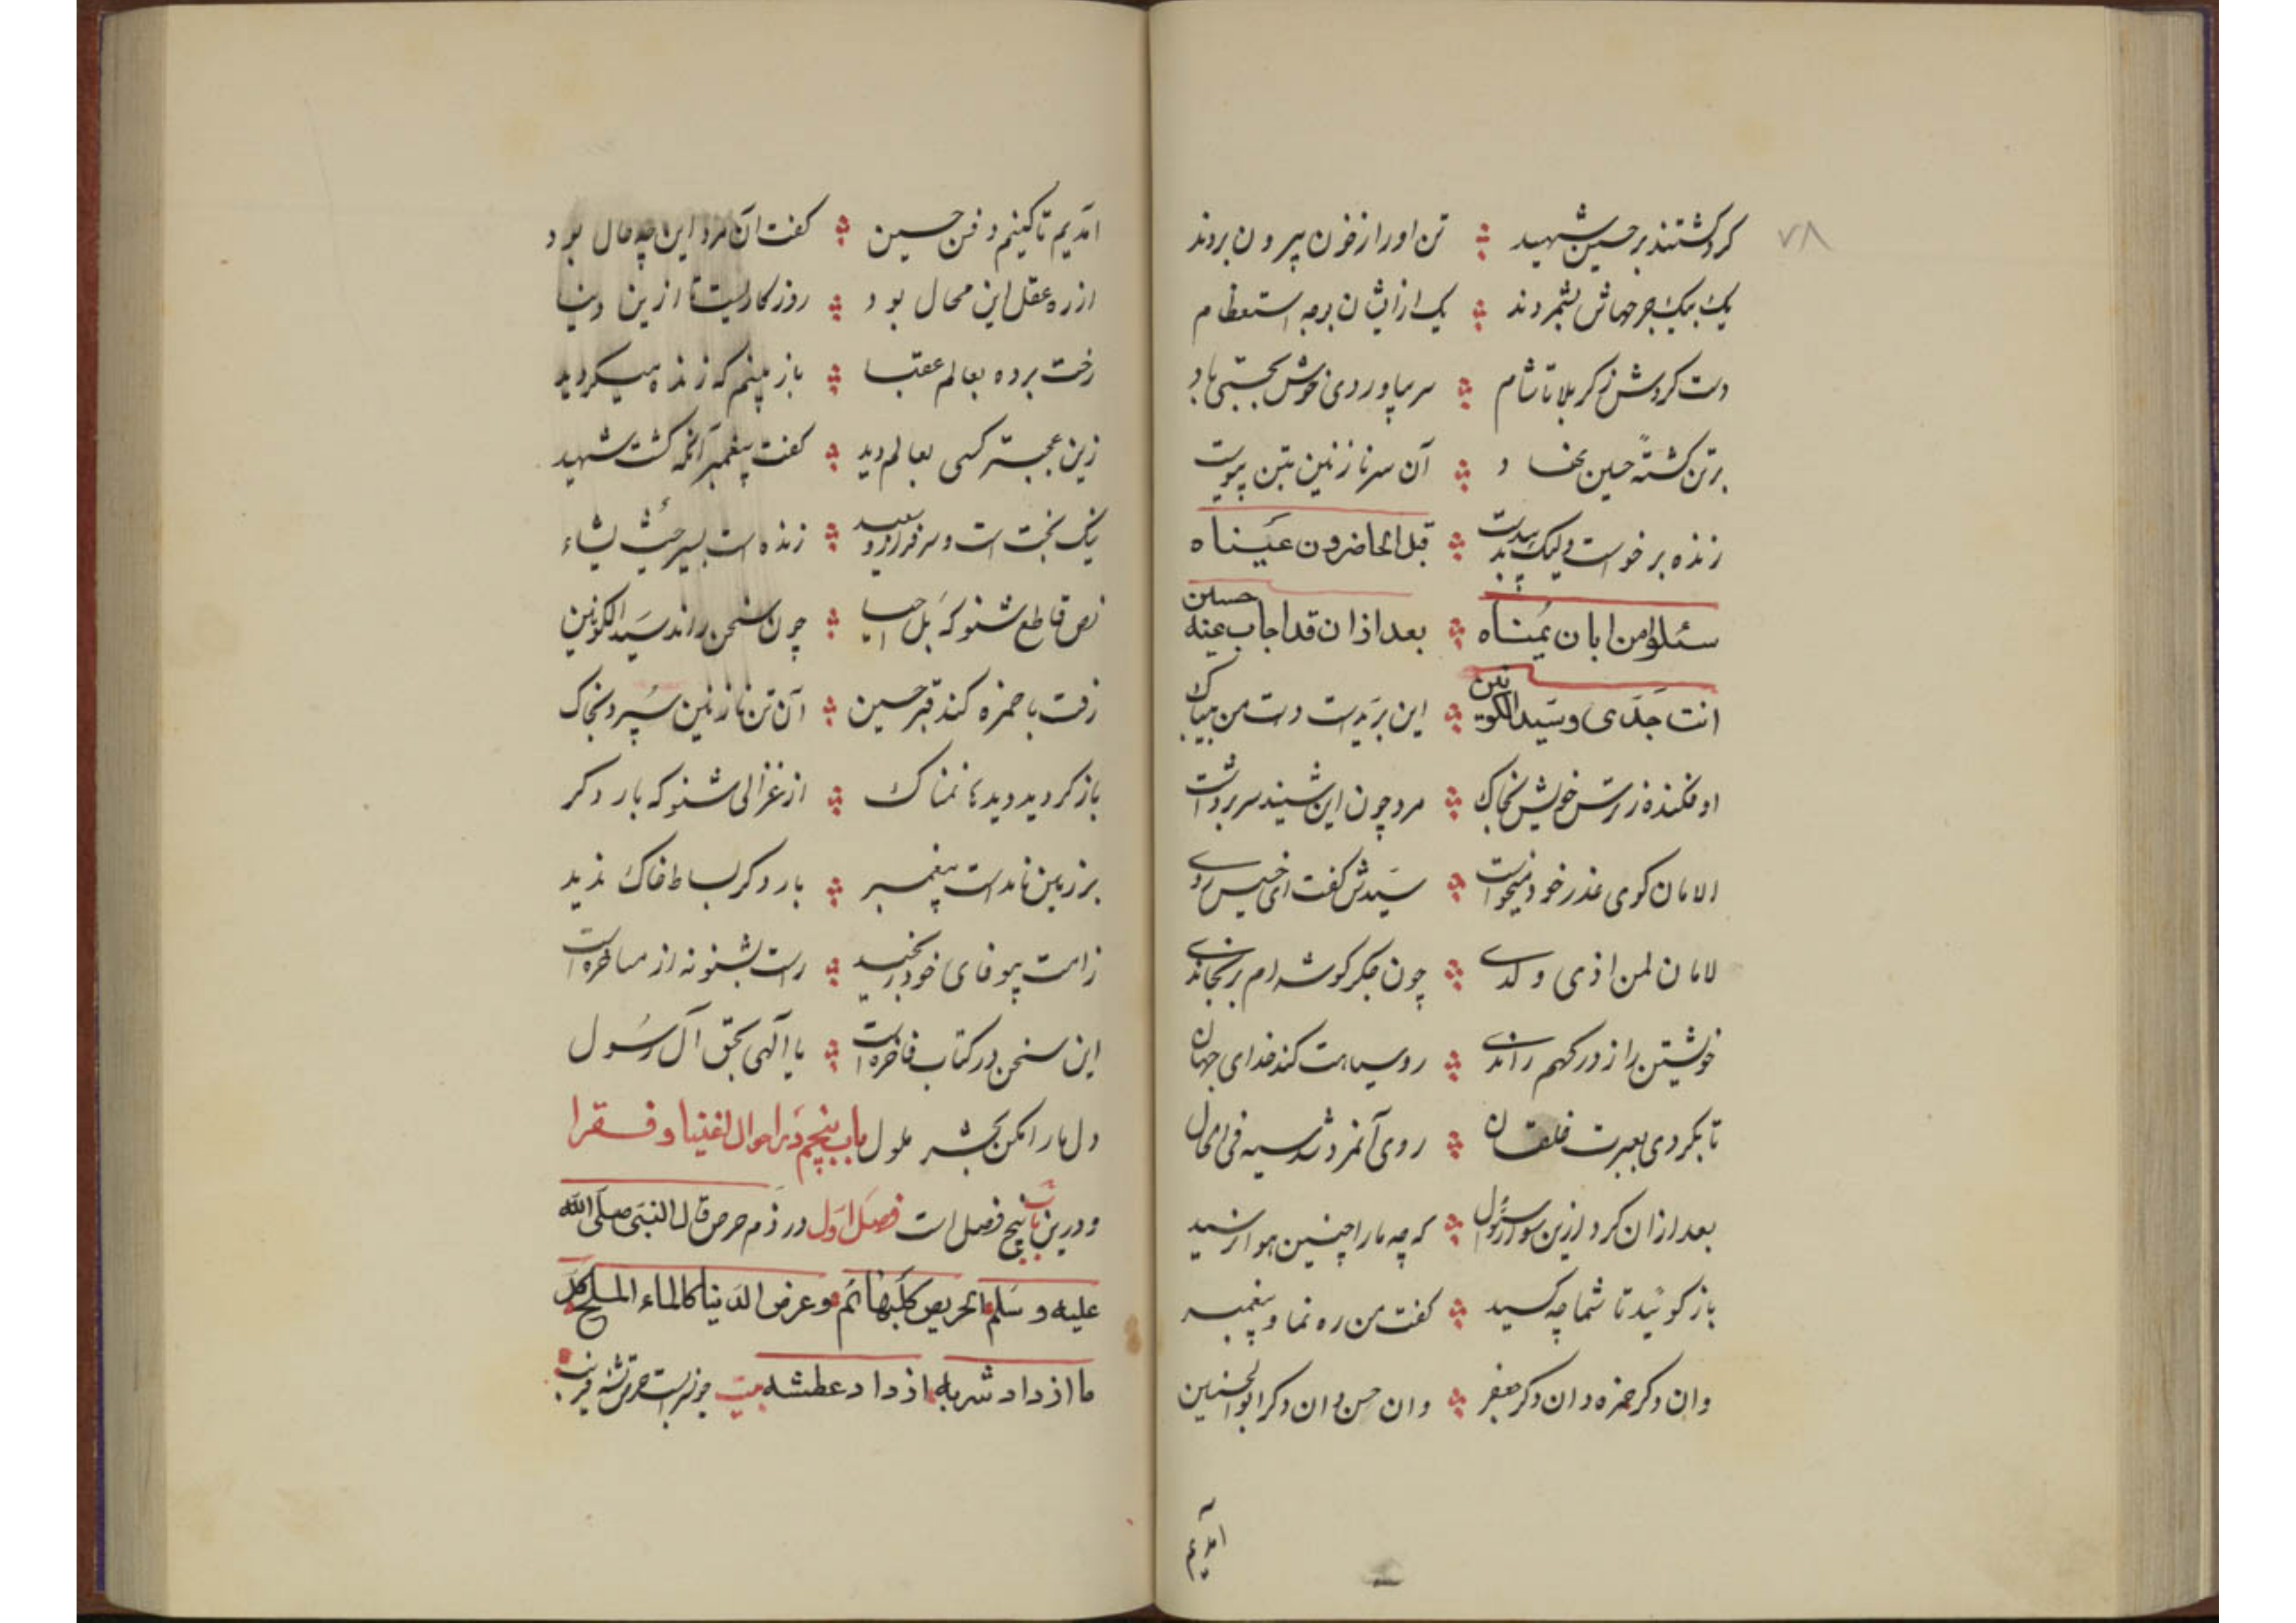 ۷۸
کرد گشتند بر حسین شهید تن او را ز خون بیرون بردند
یک بیک جرحهاش بشمردند یک از ایشان بوجه استعظام
دست کردش ز کربلا تا شام سر بیاوردی خوش بجستی باد
بر تن کشته حسین نهاد آن سر نازنین بتن پیوست
زنده برخواست ولیک بد قبل الحاضرون عیناه
سئلوا من ابان یمناه بعد از ان قد اجاب عینه حسین
انت جدی وسید الکونین این بریدست دست من بیباک
او فکنده ز ترس خویش بخاک مرد چون این شنید سر برداشت
الامان کوی عذر خود میخواست سیدش کفت ای خسیس روی
لامان لمن اذی ولدی چون جکر کوشه ام برنجاندی
خویشتن را ز درکهم راندی رو سیاهت کند خدای جهان
تا بکردی بعبرت خلقان روی آنمرد شد سیه فی الحال
بعد ازان کرد ازین سؤال رسول که چه ما را چنین هوا رسید
باز کوئید تا شما چه کسید کفت من ره نما و پیغمبر
وان دکر حمزه وان دکر جعفر وان حسن وان دکر ابو الحسنین
آمدیم
آمدیم تا کنیم دفن حسین کفت آن مرد این چه حال بود
از ره عقل این محال بود روزکاریست تا ازین دنیا
رخت برده بعالم عقبا باز بینم که زنده میکردید
زین عجبتر کسی بعالم دید کفت پیغمبر آنکه کشت شهید
نیک بخت است و سرفراز و سعید زنده است بسیر حیث یشاء
نص قاطع شنو که بل احیا چون سخن راند سید الکونین
رفت با حمزه کند قبر حسین آن تن نازنین سپرد بخاک
باز کردید دیده نمناک از غزالی شنو که بار دکر
بر زمین نامدست پیغمبر بار دکر بساط خاک ندید
ز امت بیوفای خود رنجید راست بشنو نه از مساخره است
این سخن در کتاب فاخره است یا الهی بحق آل رسول
دل ما را مکن بحشر ملول باب پنجم در احوال اغنیا و فقرا
و درین باب پنج فصل است فصل اول در ذم حرص قال النبی صلی الله
علیه و سلم الحریص کلبهائم وعرض الدنیا کالماء الملح کل
ما ازداد شربه ازداد عطشه بیت